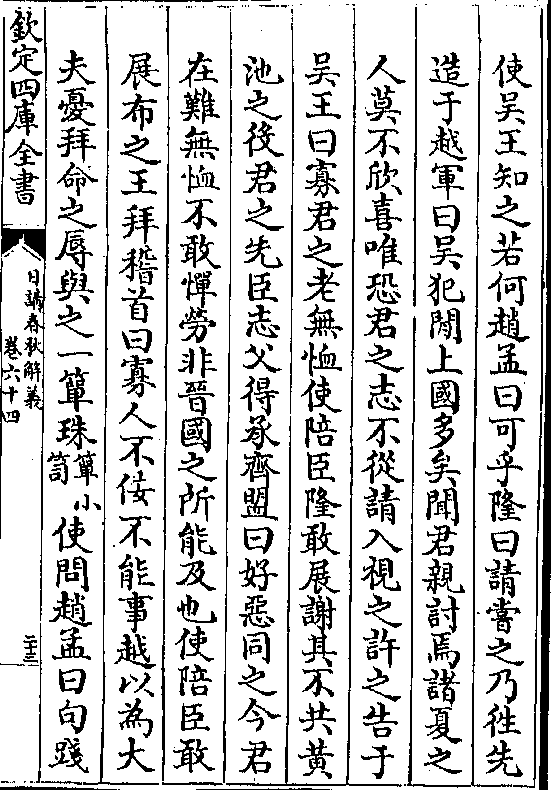 使吴王知之若何趙孟曰可乎隆曰請嘗之乃徃先
造于越軍曰吴犯閒上國多矣聞君親討焉諸夏之
人莫不欣喜唯恐君之志不從請入視之許之告于
吴王曰寡君之老無恤使陪臣隆敢展謝其不共黄
池之役君之先臣志父得承齊盟曰好惡同之今君
在難無恤不敢憚勞非晉國之所能及也使陪臣敢
展布之王拜稽首曰寡人不佞不能事越以為大
夫憂拜命之辱與之一簞珠簞小笥使問趙孟曰句踐
欽定四庫全書
日講春秋解義
卷六十四
二十三